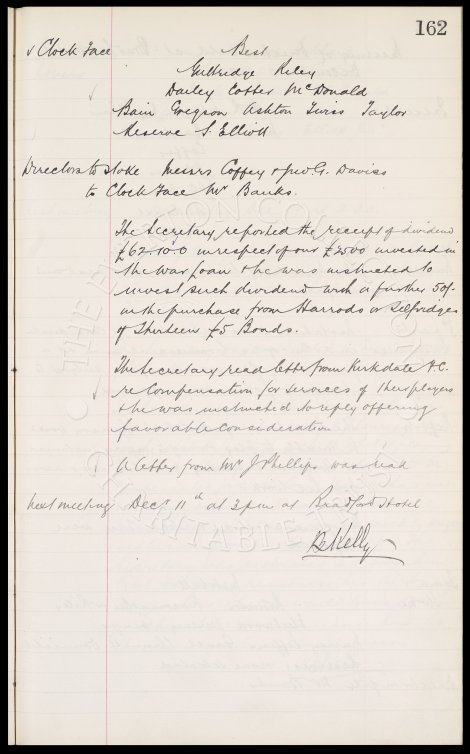 162
v Clock Face Best
Guttridge Riley
Dailey Cotter McDonald
Bain Gregson Ashton Twiss Taylor
Reserve S. Elliott
Directors to Stoke Messrs Coffey & Jno. G. Davies
to Clock Face Mr Banks.
The Secretary reported the receipt of dividend
£62.10.0 in respect of our £2500 invested in
the War Loan & he was instructed to
invest such dividend with a further 50/-
in the purchase from Harrods or Selfridges
of Thirteen £5 Bonds.
The Secretary read letter from Kirkdale F.C.
re Compensation for services of their players
& he was instructed to reply offering
favorable consideration
A letter from Mr J Phillips was read
next meeting Decr 11th at 2 pm at Bradford Hotel
Kelly